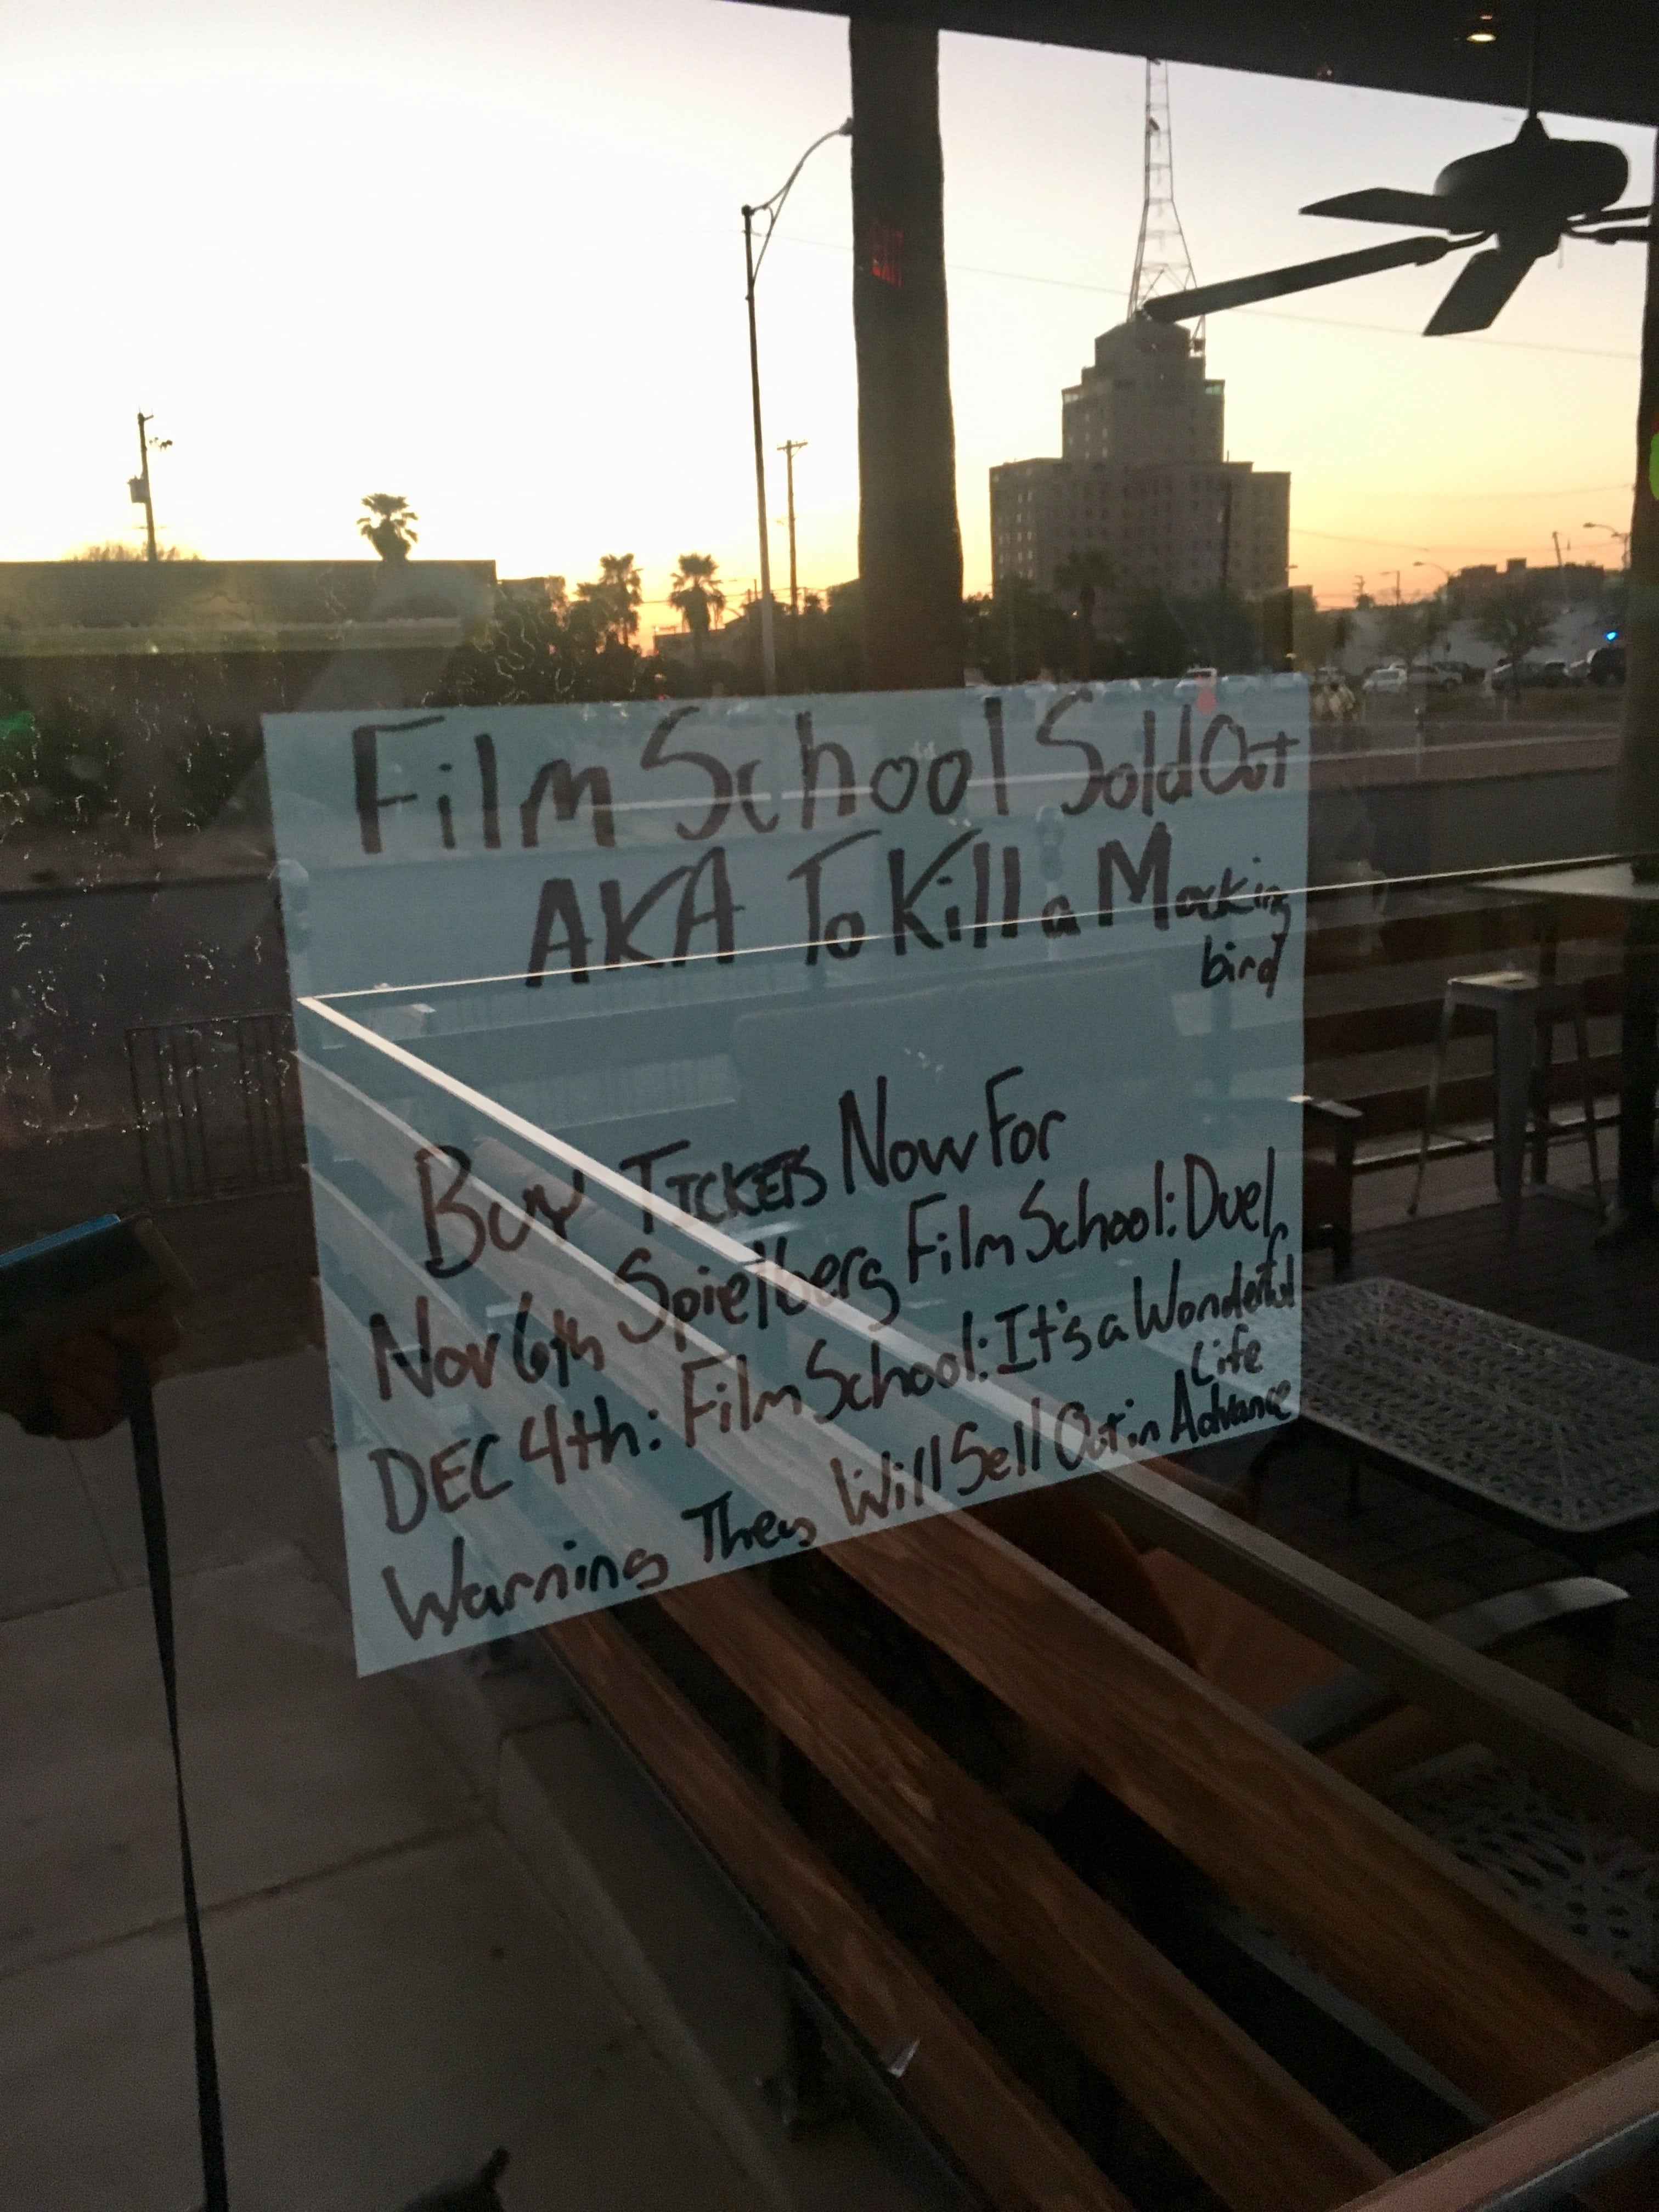 EXIT
Film School Sold Out
AKA To Kill a Mocking
bird
Buy Tickets Now For
Nov 6th Spielberg Film School: Duel,
DEC 4th: Film School: It's a Wonderful
Life
Warning They Will Sell Out in Advance